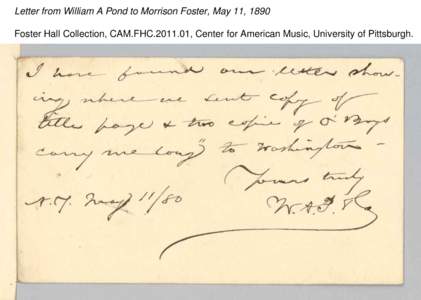 Letter from William A Pond to Morrison Foster, May 11, 1890
Foster Hall Collection, CAM.FHC.2011.01, Center for American Music, University of Pittsburgh.
I have found our letter show-
ing where we sent copy of
title page & two copies of "O Boys
carry me long" to Washington -
Yours truly
N.Y. May 11/80
W.A.P. & Co